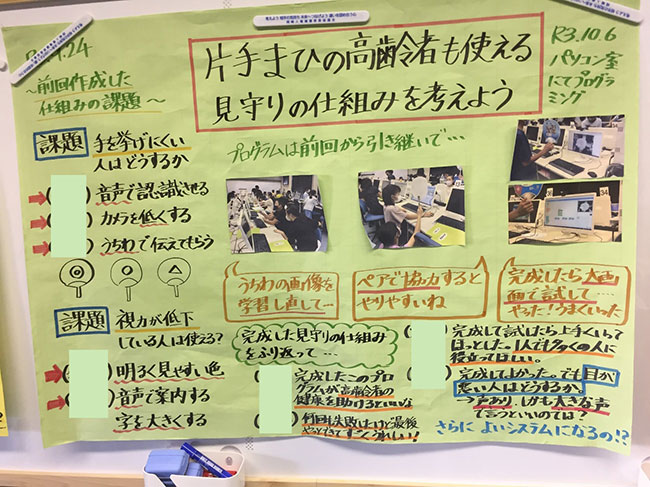 .24
～前回作成した
仕組みの課題～
片手まひの高齢者も使える
見守りの仕組みを考えよう
R3.10.6
パソコン室
にてプログラ
ミング
課題 手を挙げにくい
人はどうするか
音声で認識させる
カメラを低くする
うちわで伝えてもらう
課題 視力が低下
している人は使える?
明るく見やすい色
音声で案内する
字を大きくする
プログラムは前回から引き継いで…
うちわの画像を
学習し直して…
ペアで協力すると
やりやすいね
完成したら大画
面で試して……
やった!うまくいった
完成した見守りの仕組み
をふり返って…
完成したこのプロ
グラムが高齢者の
健康を助けるといいな
前回も失敗したけど最後
やっとできてすごくうれしい!
完成して試したら上手くいって
ほっとした。1人でも多くの人に
役立ってほしい。
完成してよかった。でも目が
悪い人はどうするか、
しかも大きな声
で言うといいのでは?
さらに よいシステムになるの!?